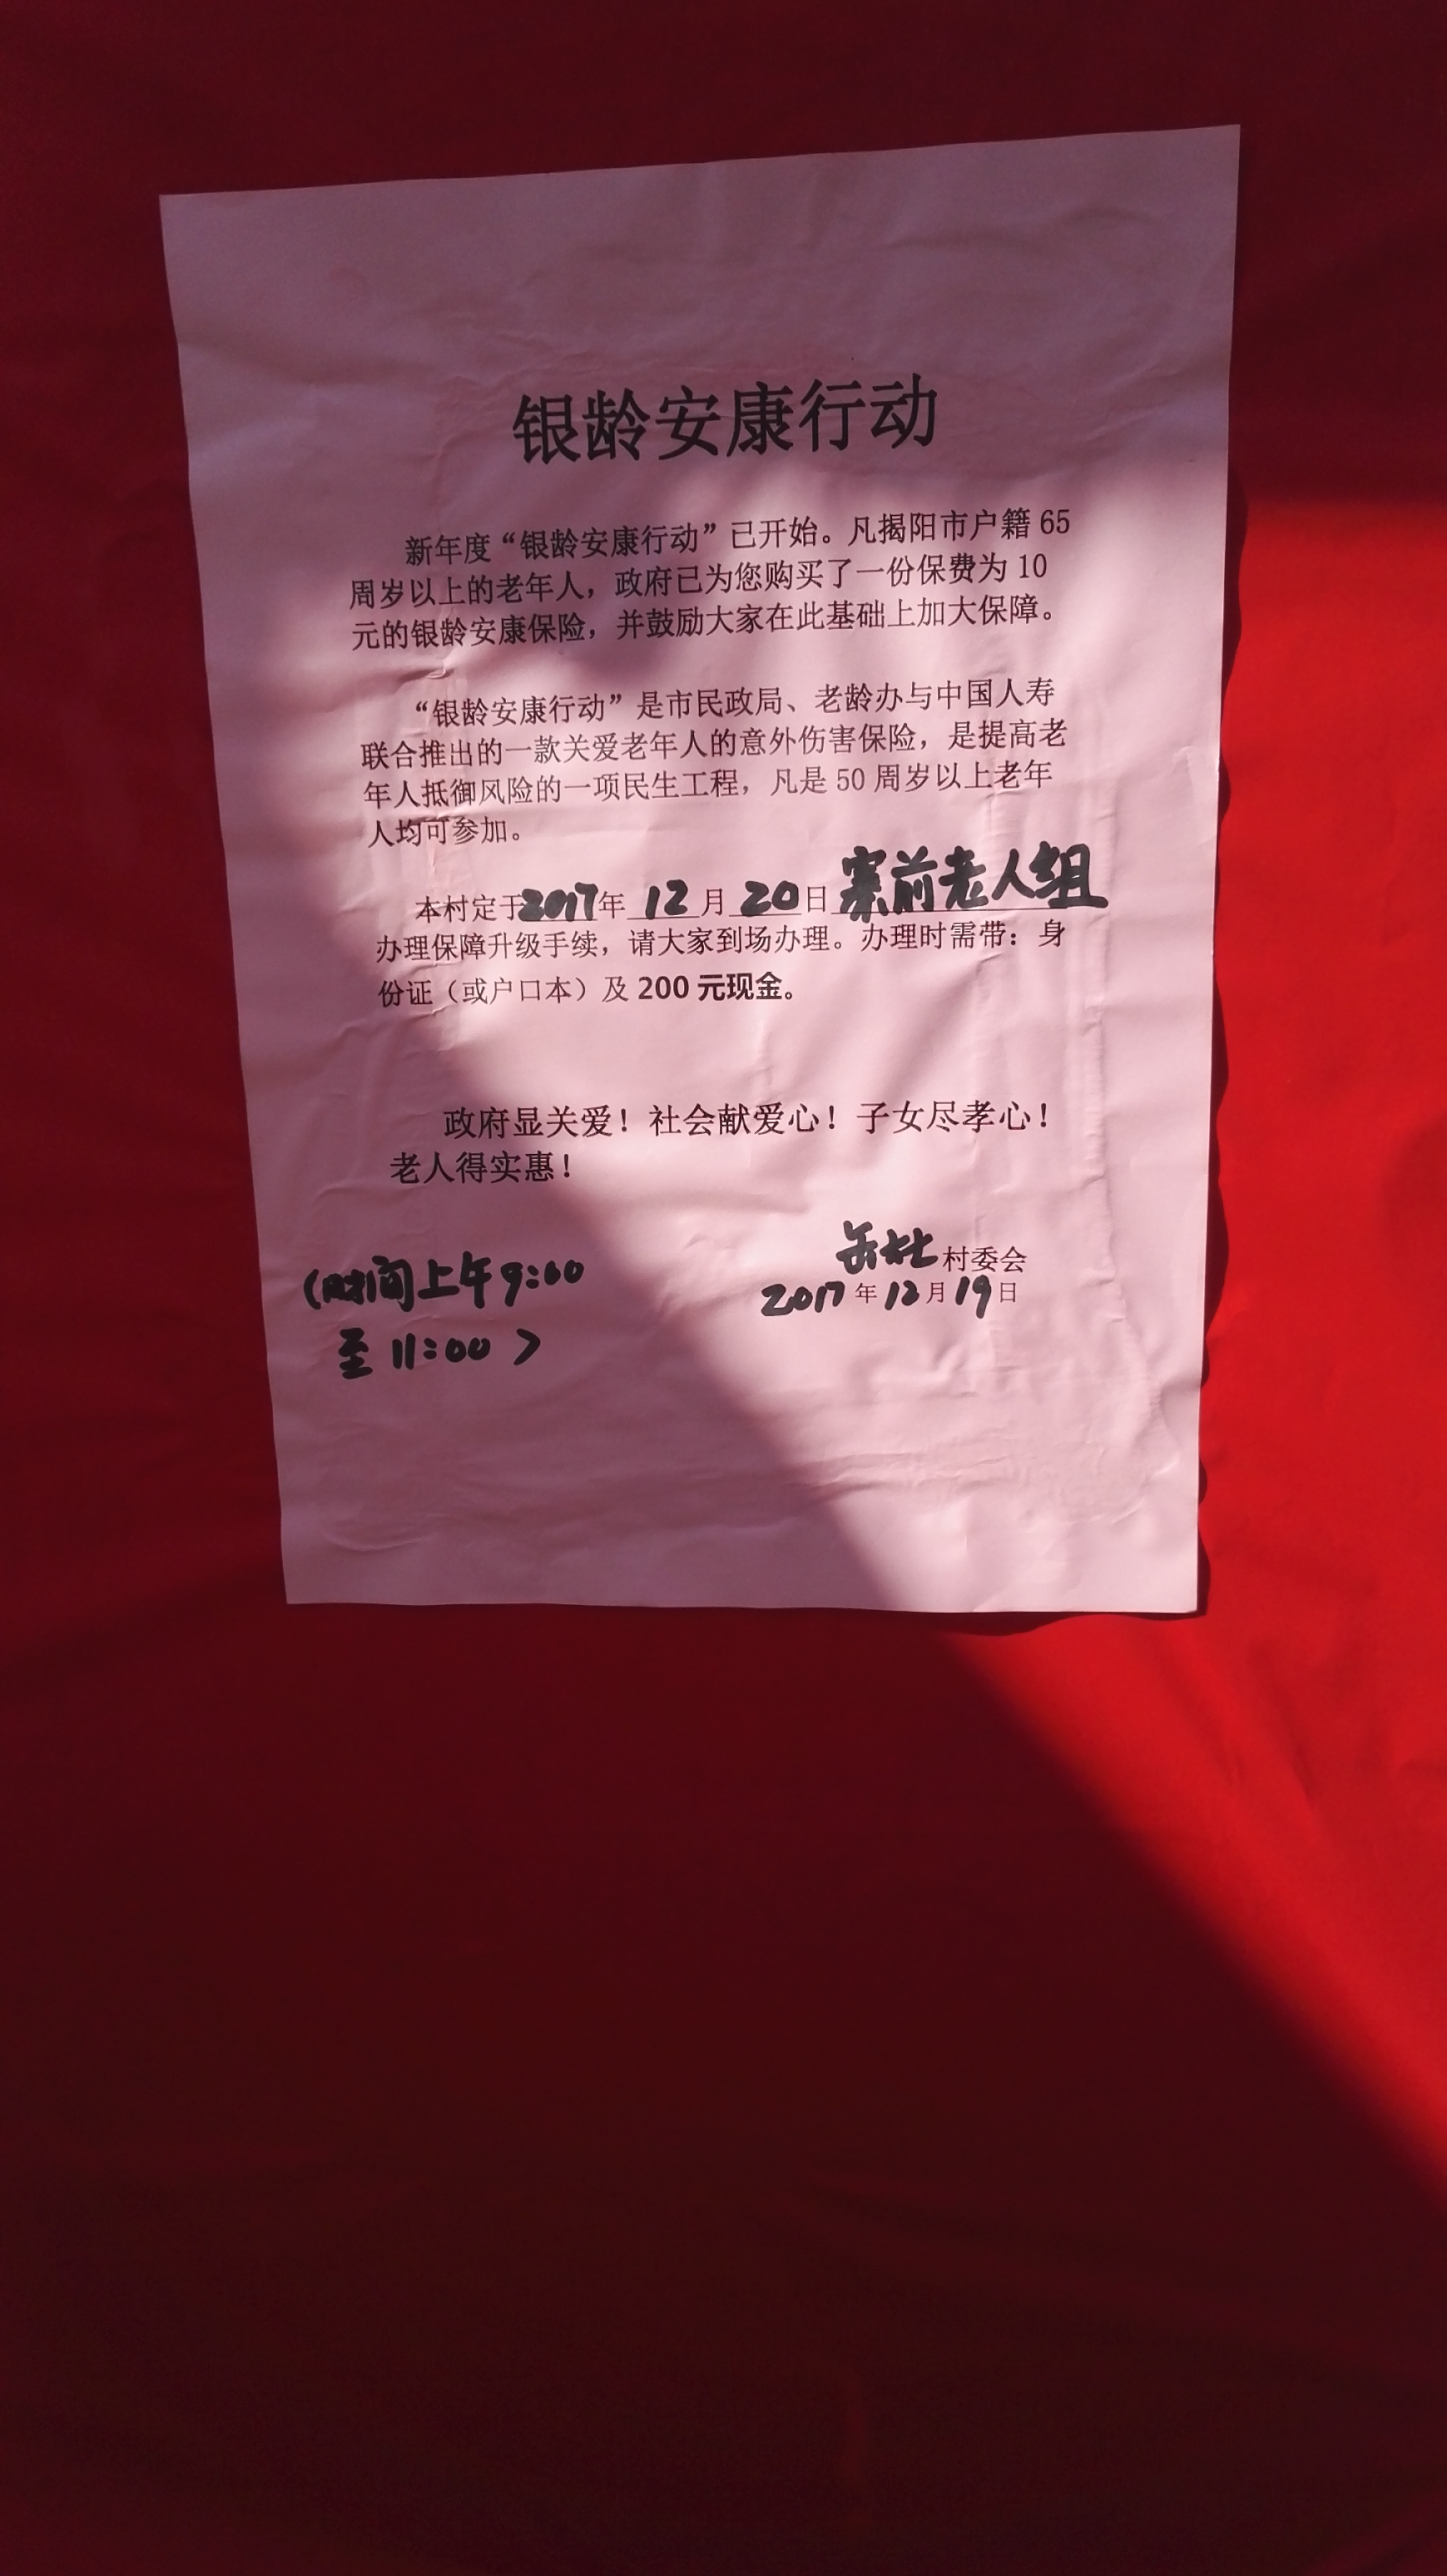 银龄安康行动
新年度“银龄安康行动”已开始。凡揭阳市户籍 65
周岁以上的老年人，政府已为您购买了一份保费为 10
元的银龄安康保险，并鼓励大家在此基础上加大保障。
“银龄安康行动”是市民政局、老龄办与中国人寿
联合推出的一款关爱老年人的意外伤害保险，是提高老
年人抵御风险的一项民生工程，凡是 50 周岁以上老年
人均可参加。
本村定于2017年 12 月 20 日寨前老人组
办理保障升级手续，请大家到场办理。办理时需带：身
份证（或户口本）及 200 元现金。
政府显关爱！社会献爱心！子女尽孝心！
老人得实惠！
村委会
2017 年 12 月 19 日
（时间上午9:00
至 11:00）